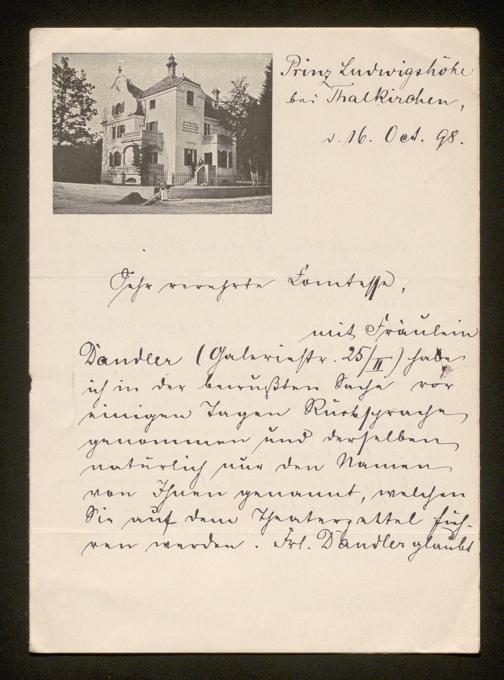 Prinz Ludwigshöhe
bei Thalkirchen,
d. 16. Oct. 98.
Sehr verehrte Comtesse,
mit Fräulein
Dandler (Galeriestr. 25/II) habe
ich in der bewußten Sache vor
einigen Tagen Rücksprache
genommen und derselben
natürlich nur den Namen
von Ihnen genannt, welchen
Sie auf dem Theaterzettel füh-
ren werden. Frl. Dandler glaubt